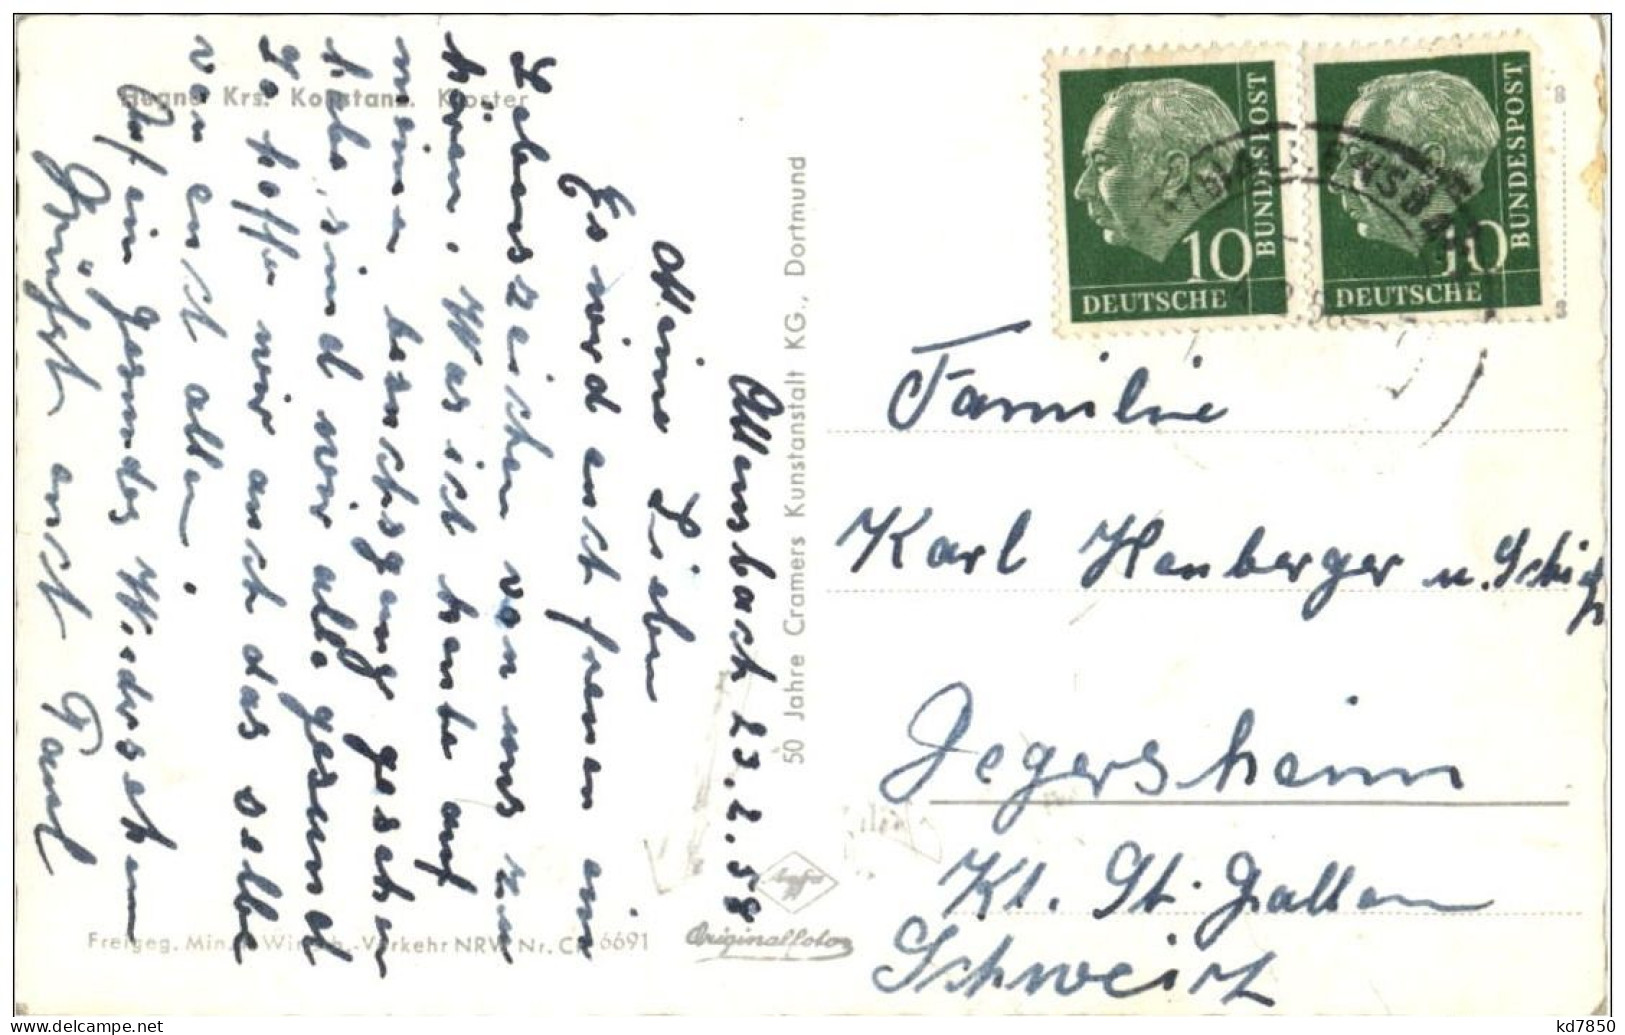 Hegne Krs. Konstanz. Kloster
Allensbach 23.2.58
Meine Lieben
Es wird euch freuen ein
Lebenszeichen von uns zu
hören. Was ich heute auf
meinem
habe, sind wir alle gesund
so hoffen wir auch das selbe
von euch allen.
Auf ein gesundes Wiedersehen
Grüsst euch Paul
50 Jahre Cramers Kunstanstalt KG., Dortmund
Freigeg. Min. f. Wirtsch.-Verkehr NRW Nr. CP 6691
Agfa
Originalfoto
10
DEUTSCHE
BUNDESPOST
10
DEUTSCHE
BUNDESPOST
Familie
Karl
Degersheim
Kt. St. Gallen
Schweiz
kd7850